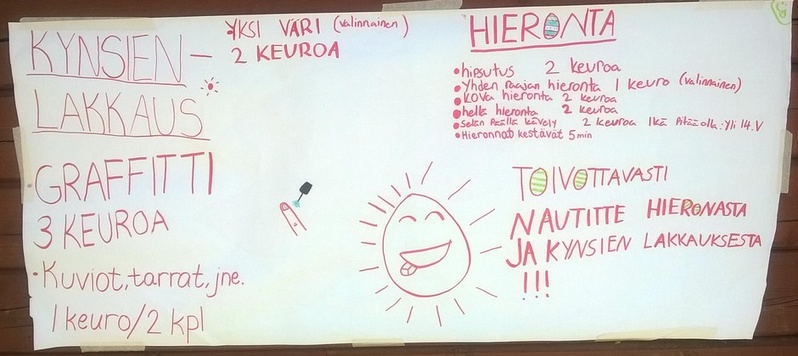 KYNSIEN-
LAKKAUS
YKSI VÄRI (valinnainen)
2 KEUROA
GRAFFITTI
3 KEUROA
• Kuviot, tarrat, jne.
1 keuro/2 kpl
HIERONTA
• hipsutus 2 keuroa
• Yhden raajan hieronta 1 keuro (valinnainen)
• Kova hieronta 2 keuroa
• hellä hieronta 2 keuroa
• Selän Päällä kävely 2 keuroa Ikä Pitää olla: yli 14.V
• Hieronnat kestävät 5 min
TOIVOTTAVASTI
NAUTITTE HIERONASTA
JA KYNSIEN LAKKAUKSESTA
!!!